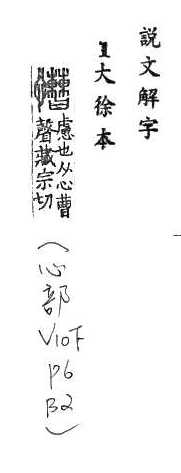 說文解字
1大徐本
慒
慮也从心曹
聲藏宗切
(心部
V10下
P6
B2)